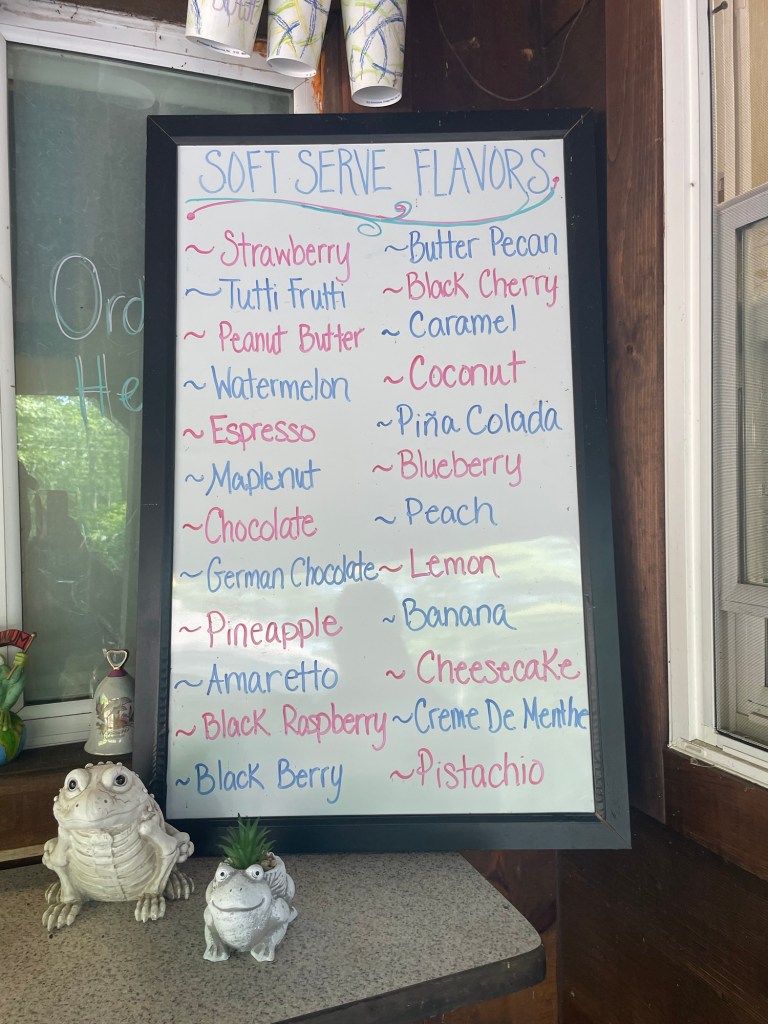 SOFT SERVE FLAVORS
~ Strawberry
~ Tutti Frutti
~ Peanut Butter
~ Watermelon
~ Espresso
~ Maplenut
~ Chocolate
~ German Chocolate
~ Pineapple
~ Amaretto
~ Black Raspberry
~ Black Berry
~ Butter Pecan
~ Black Cherry
~ Caramel
~ Coconut
~ Piña Colada
~ Blueberry
~ Peach
~ Lemon
~ Banana
~ Cheesecake
~ Creme De Menthe
~ Pistachio
Ord
He